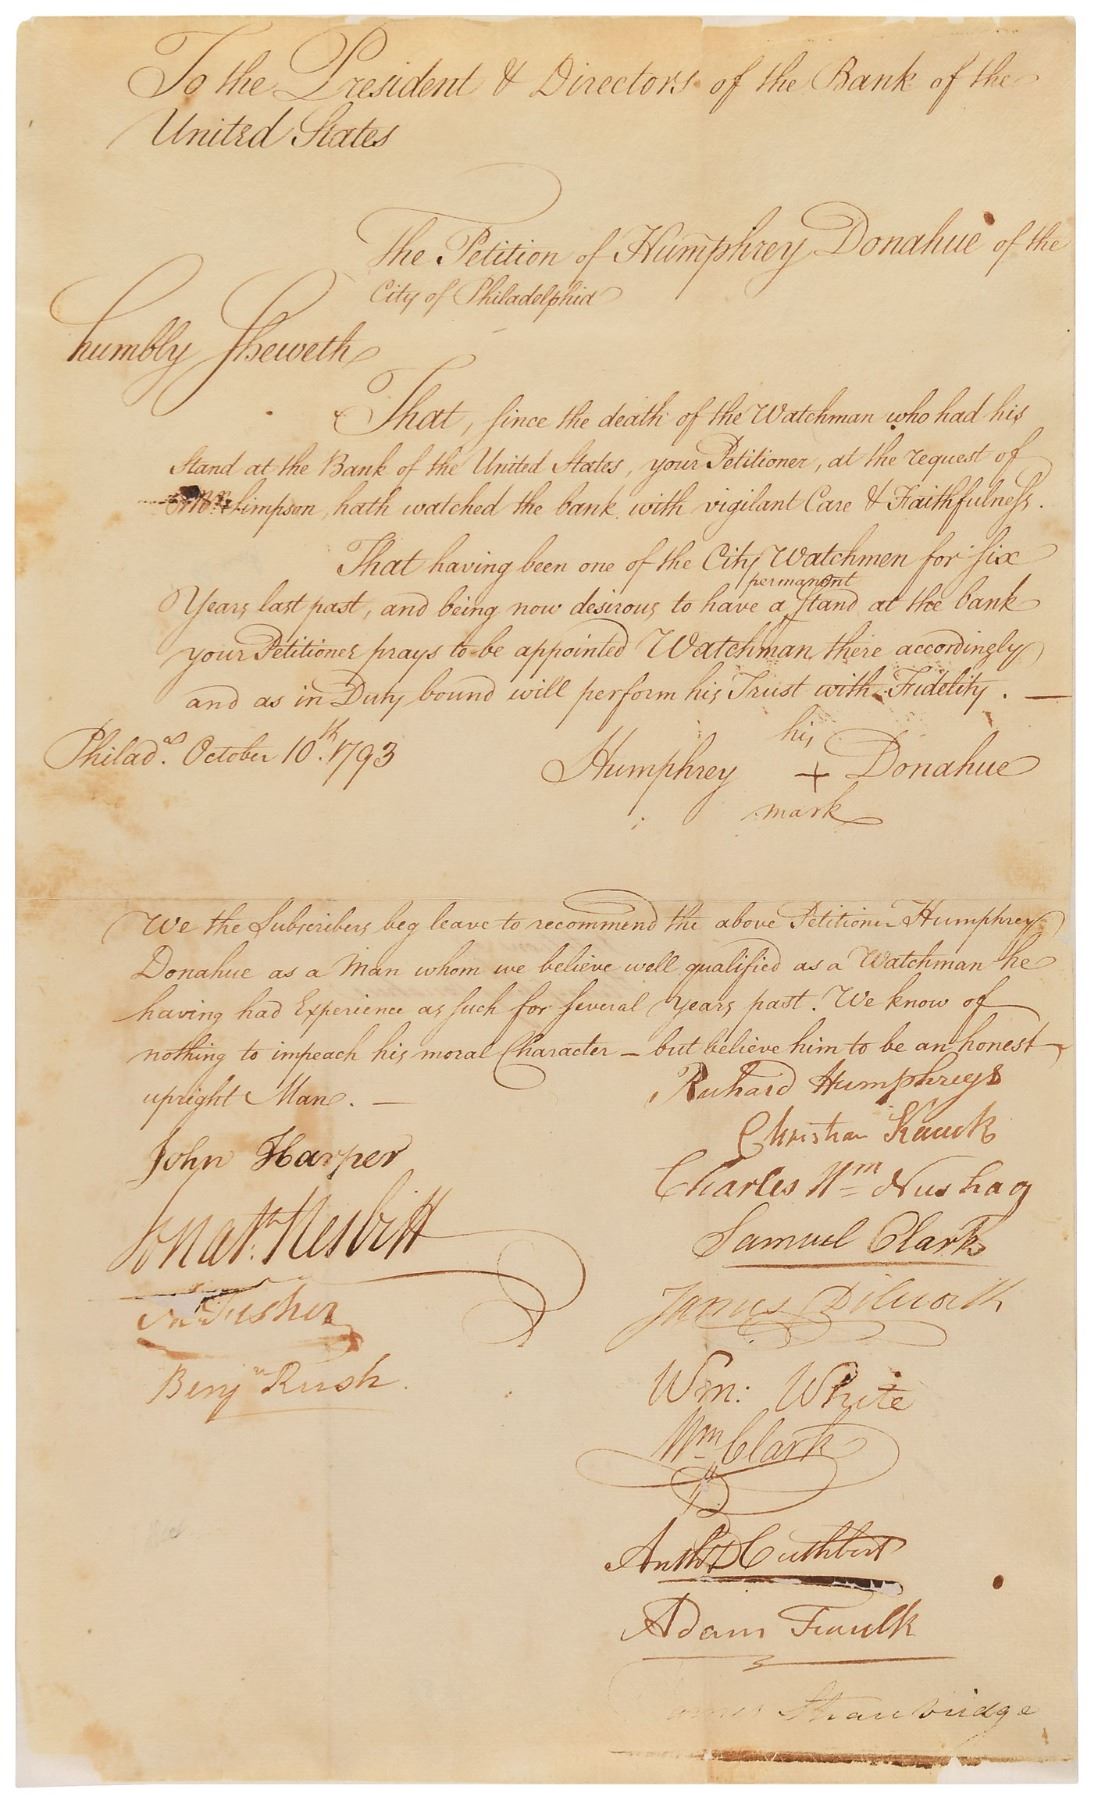 To the President & Directors of the Bank of the
United States
The Petition of Humphrey Donahue of the
City of Philadelphia
humbly Sheweth
That, since the death of the Watchman who had his
Stand at the Bank of the United States, your Petitioner, at the request of
Simpson, hath watched the bank with vigilant Care & Faithfulness.
That having been one of the City Watchmen for six
permanent
Years last past, and being now desirous to have a Stand at the bank
your Petitioner prays to be appointed Watchman there accordingly
and as in Duty bound will perform his Trust with Fidelity. —
Philada. October 10th. 1793
his
Humphrey + Donahue
mark
We the Subscribers beg leave to recommend the above Petitioner Humphrey
Donahue as a Man whom we believe well qualified as a Watchman he
having had Experience as such for several Years past. We know of
nothing to impeach his moral Character — but believe him to be an honest
upright Man. —
John Harper
Jonath. Nesbitt
Fisher
Benjn Rush.
Richard Humphreys
Christian
Charles Wm Nushag
Samuel Clark
James Dilworth
Wm: White
Wm Clark
Anthy Cuthbert
Adam Faulk
Strawbridge